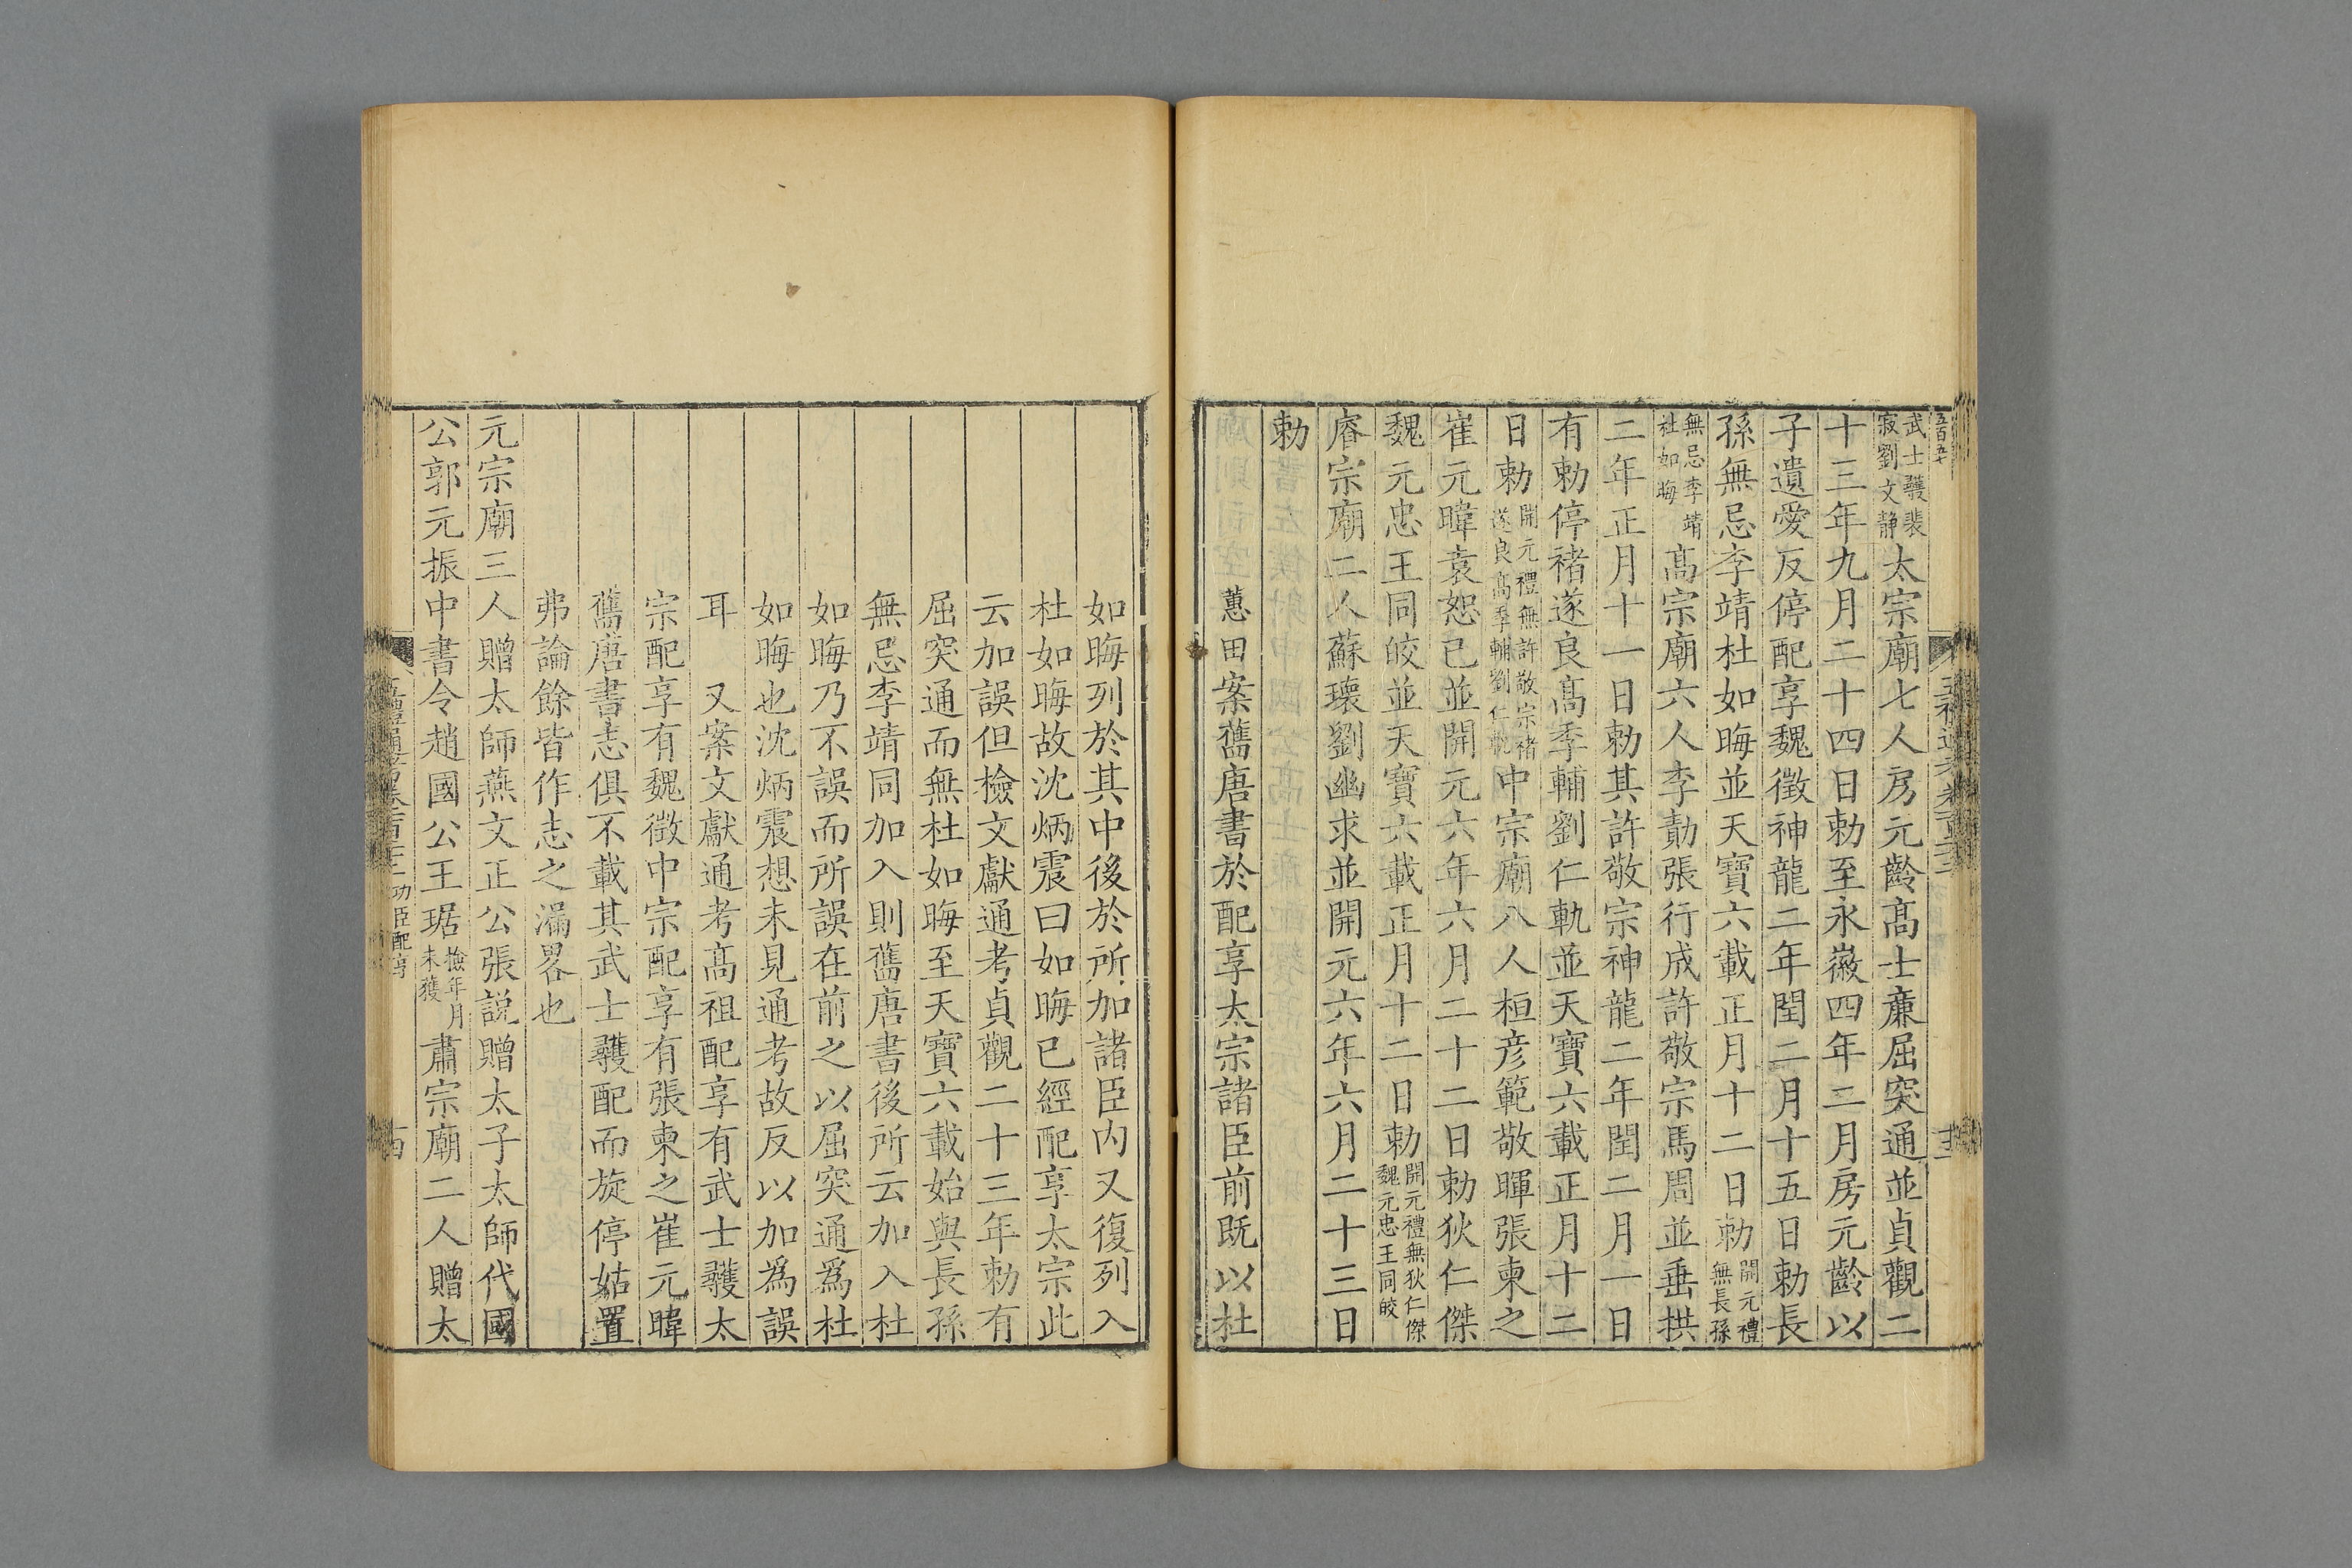 五百五十
武士彠裴寂劉文靜太宗廟七人房元齡高士亷屈突通並貞觀二
十三年九月二十四日勅至永徽四年二月房元齡以
子遺愛反停配享魏徵神龍二年閏二月十五日勅長
孫無忌李靖杜如晦並天寶六載正月十二日勅開元禮無長孫
無忌李靖杜如晦高宗廟六人李勣張行成許敬宗馬周並垂拱
二年正月十一日勅其許敬宗神龍二年閏二月一日
有勅停褚遂良高季輔劉仁軌並天寶六載正月十二
日勅開元禮無許敬宗褚遂良高季輔劉仁軌中宗廟八人桓彦範敬暉張柬之
崔元暐袁恕己並開元六年六月二十二日勅狄仁傑
魏元忠王同皎並天寶六載正月十二日勅開元禮無狄仁傑魏元忠王同皎
睿宗廟二人蘇瓌劉幽求並開元六年六月二十三日
勅
蕙田案舊唐書於配享太宗諸臣前既以杜
如晦列於其中後於所加諸臣内又復列入
杜如晦故沈炳震曰如晦已經配享太宗此
云加誤但檢文獻通考貞觀二十三年勅有
屈突通而無杜如晦至天寶六載始與長孫
無忌李靖同加入則舊唐書後所云加入杜
如晦乃不誤而所誤在前之以屈突通爲杜
如晦也沈炳震想未見通考故反以加爲誤
耳　又案文獻通考高祖配享有武士彠太
宗配享有魏徵中宗配享有張柬之崔元暐
舊唐書志俱不載其武士彠配而旋停姑置
弗論餘皆作志之漏畧也
元宗廟三人贈太師燕文正公張説贈太子太師代國
公郭元振中書令趙國公王琚檢年月未獲肅宗廟二人贈太
功臣配享